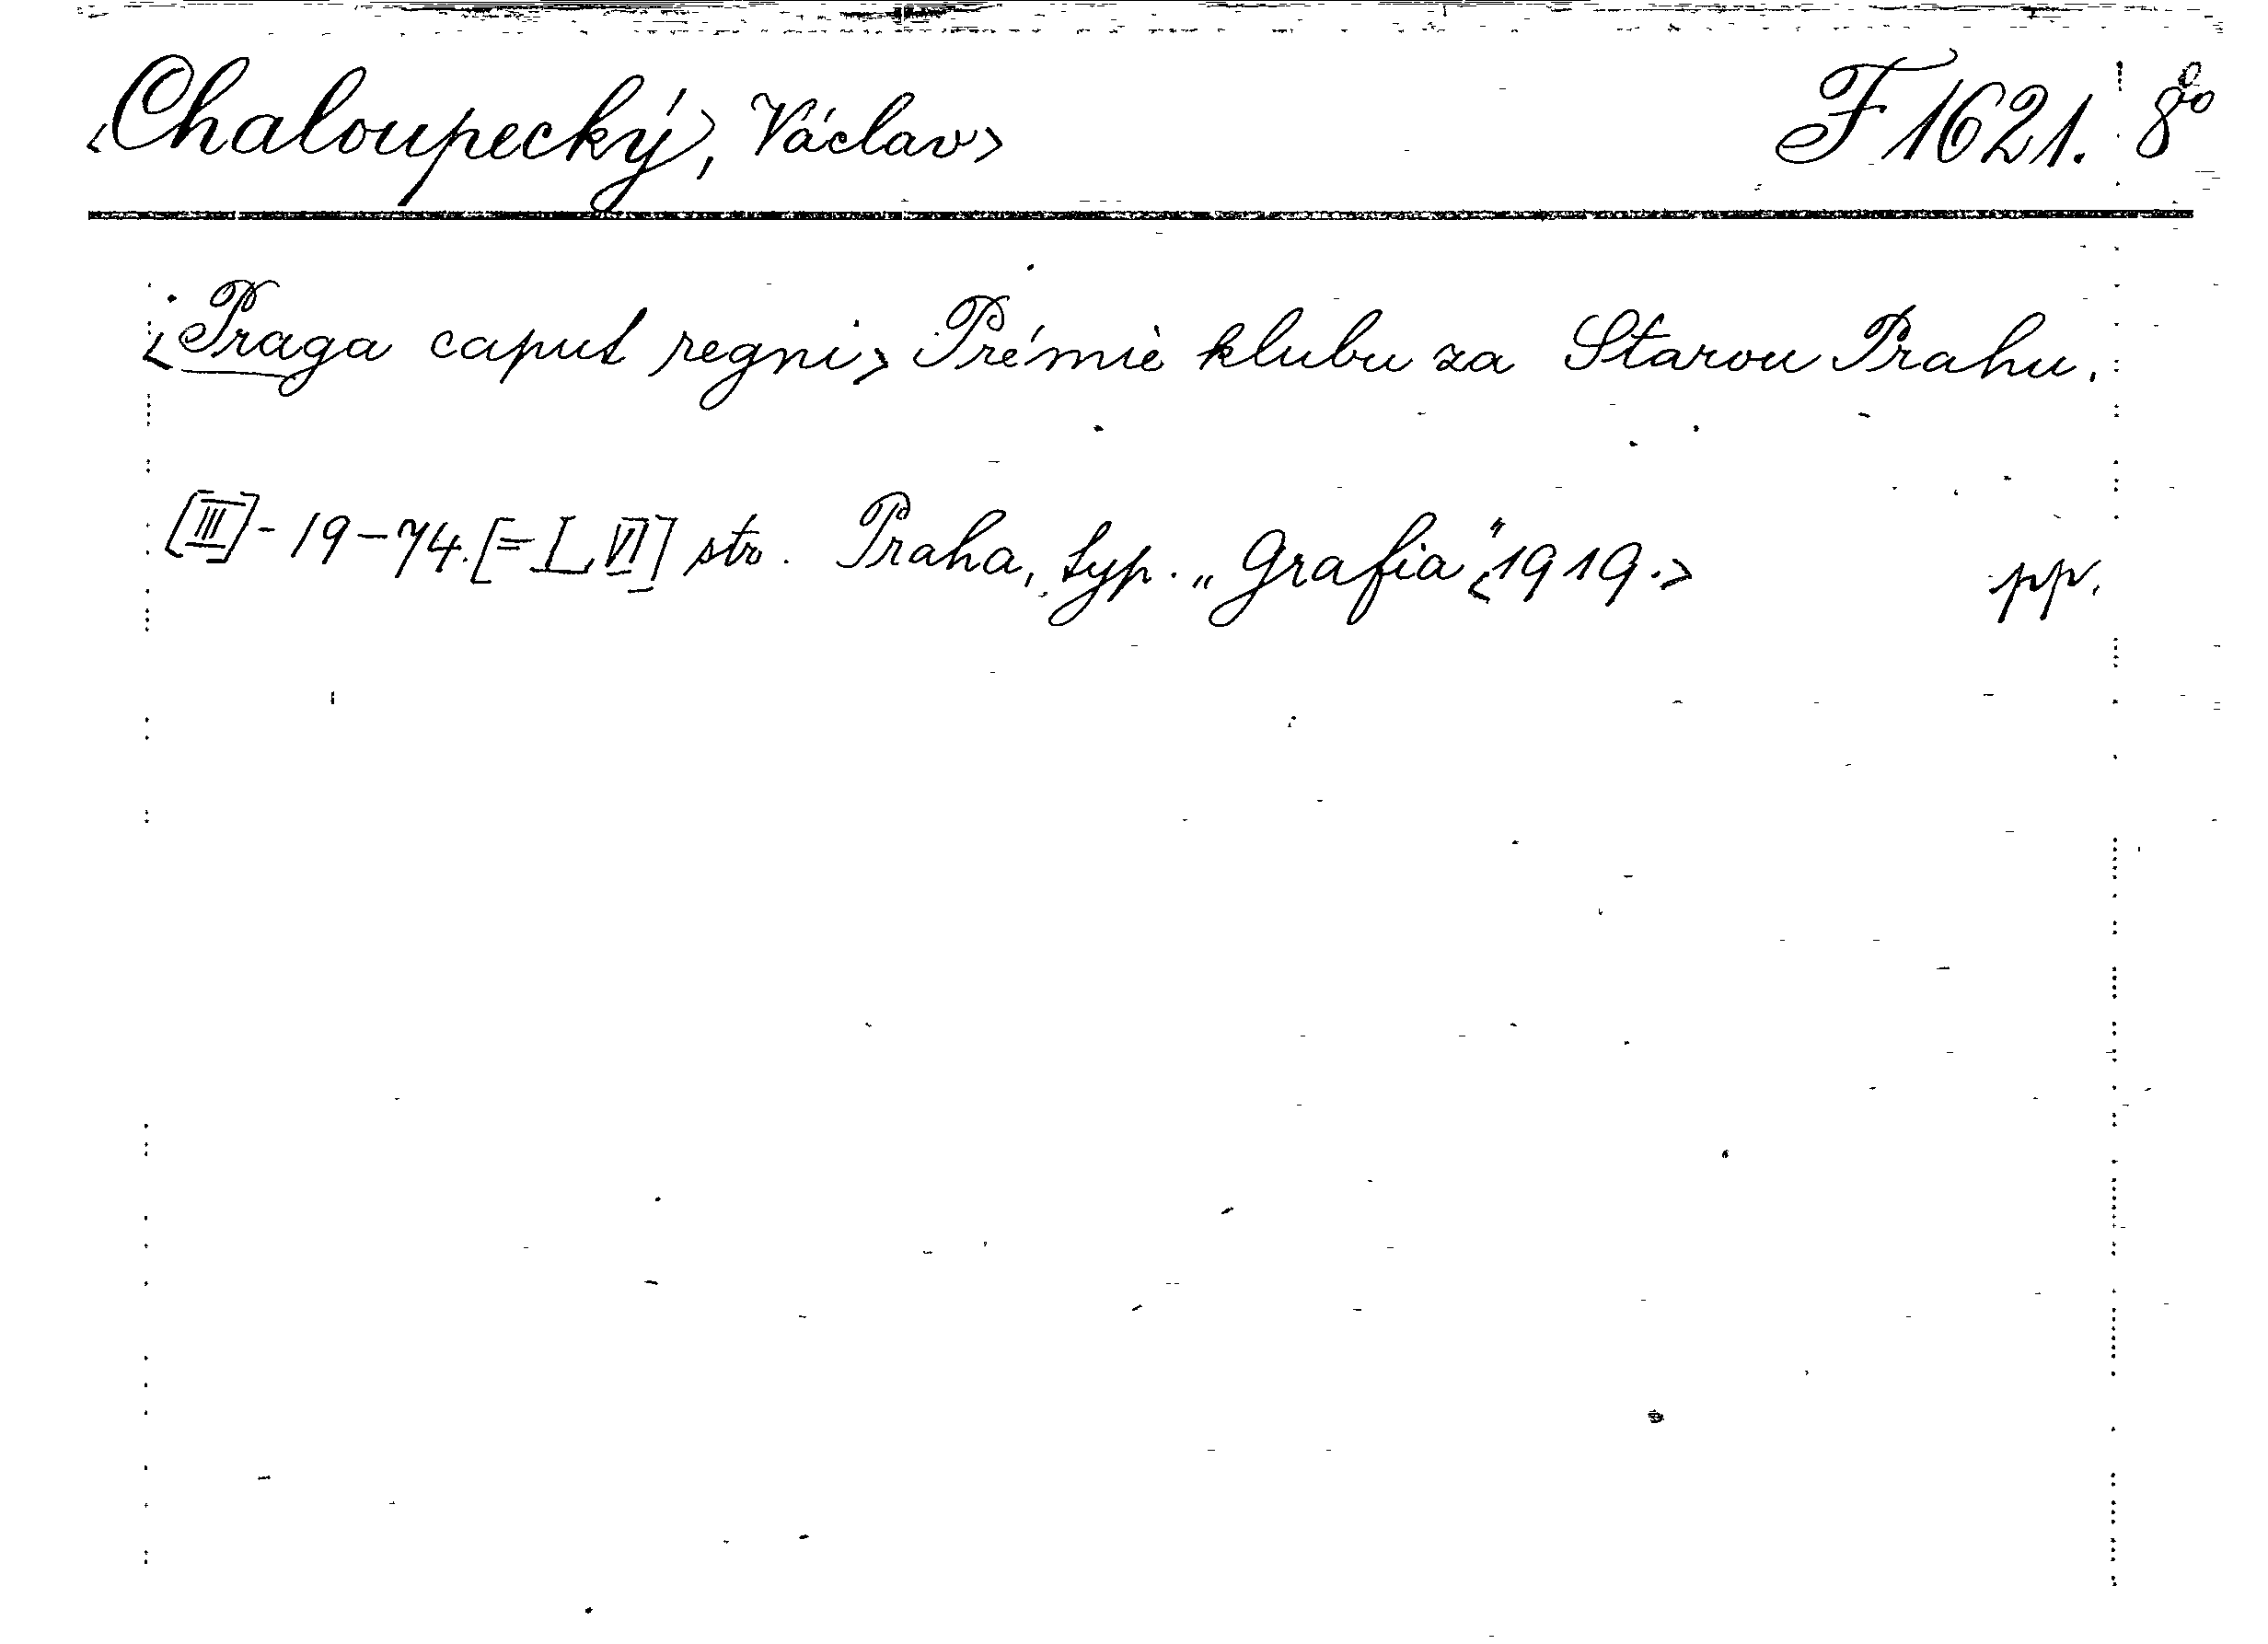 <Chaloupecký, Václav> F 1621. 8°
<Praga caput regni> Prémie klubu za Starou Prahu.
[III]-19-74.[=LVI] str. Praha, typ. „Grafia“, <1919.> pp.